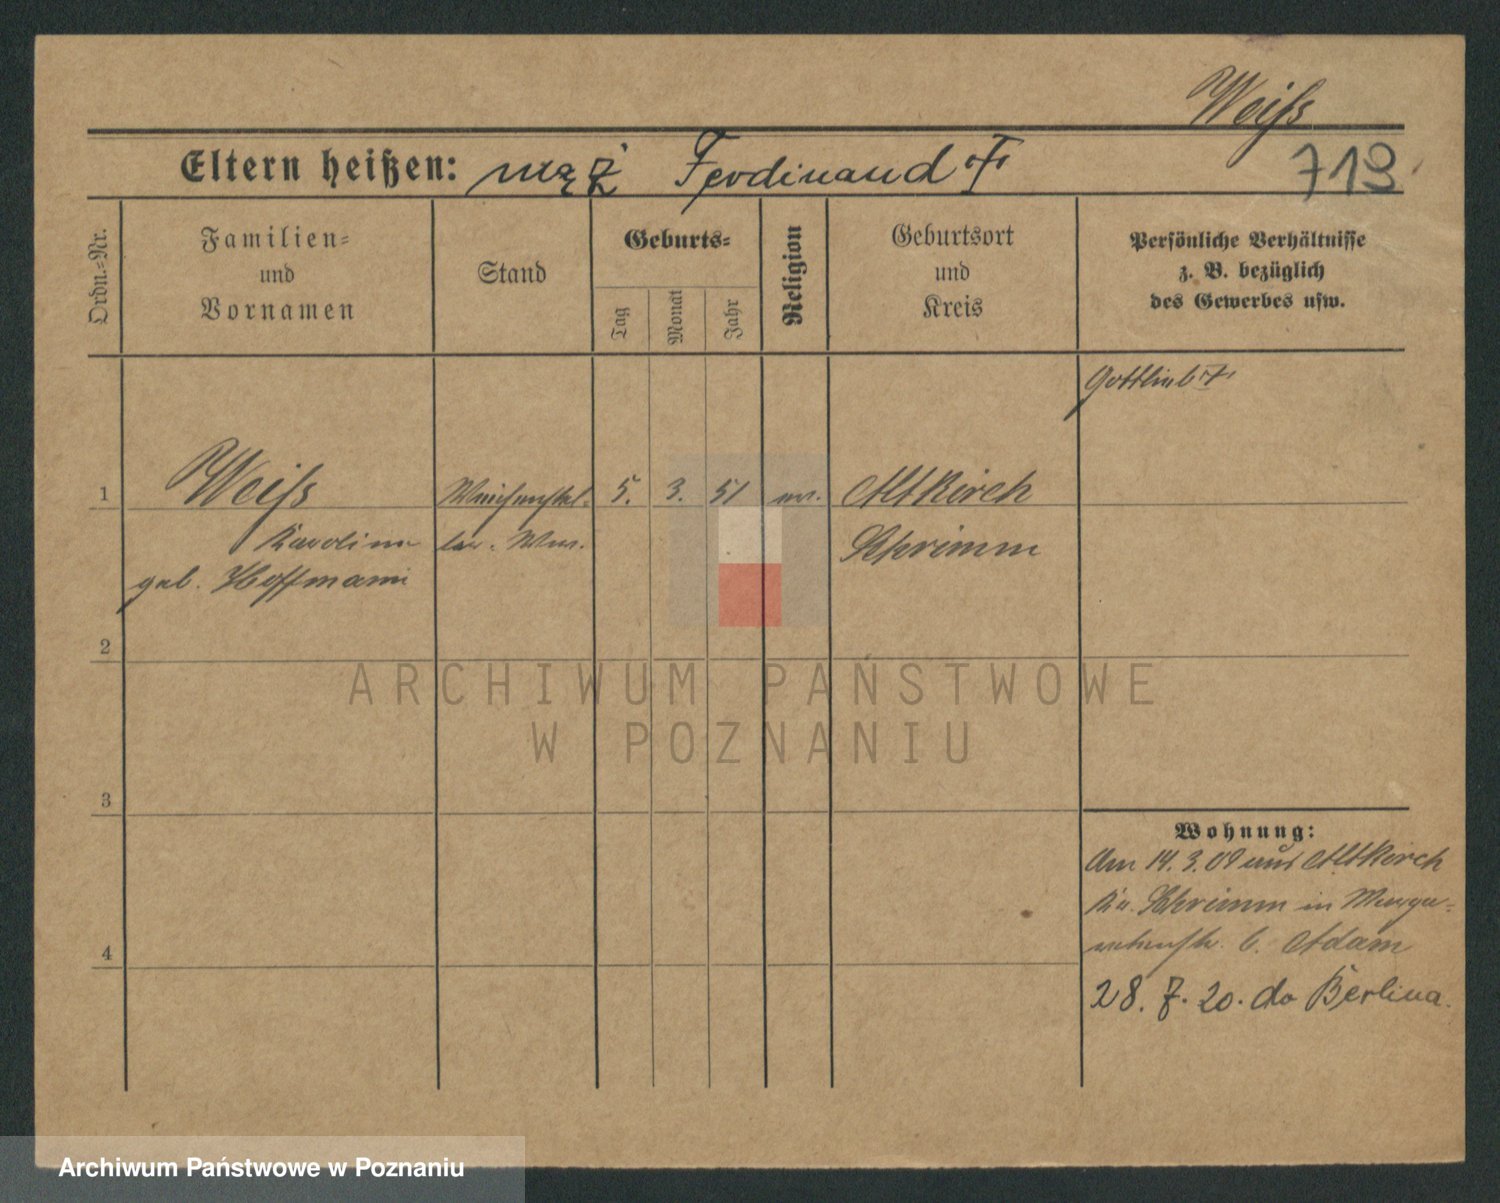 Weiſs
Eltern heißen: mąż Ferdinand †
713
Ordn.=Nr.
Familien=
und
Vornamen
Stand
Geburts=
Tag
Monat
Jahr
Religion
Geburtsort
und
Kreis
Persönliche Verhältnisse
z. B. bezüglich
des Gewerbes usw.
Gottlieb †
1
Weiſs
5. 3. 51
ev.
Altkirch
Karoline
Schrimm
geb. Hoffmann
2
ARCHIWUM PAŃSTWOWE
W POZNANIU
3
Wohnung:
Am 14.3.09 aus Altkirch
Kr. Schrimm in
b. Adam
4
28. 7. 20. do Berlina.
Archiwum Państwowe w Poznaniu